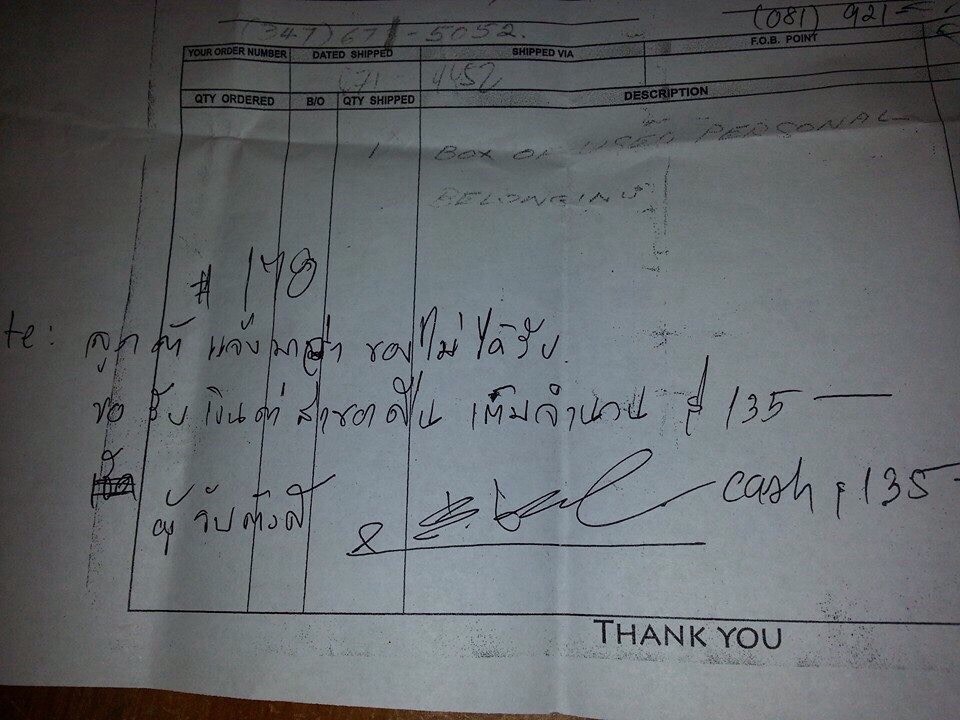 (347) 671-5052. (081) 921-
YOUR ORDER NUMBER DATED SHIPPED SHIPPED VIA F.O.B. POINT
671 4452
QTY ORDERED B/O QTY SHIPPED DESCRIPTION
1 BOX OF USED PERSONAL
BELONGING
# 178
te: ลูกค้า แจ้งมาว่า ของไม่ได้รับ
ขอรับเงินค่า คืน เต็มจำนวน $ 135
ผู้รับ cash $ 135
THANK YOU